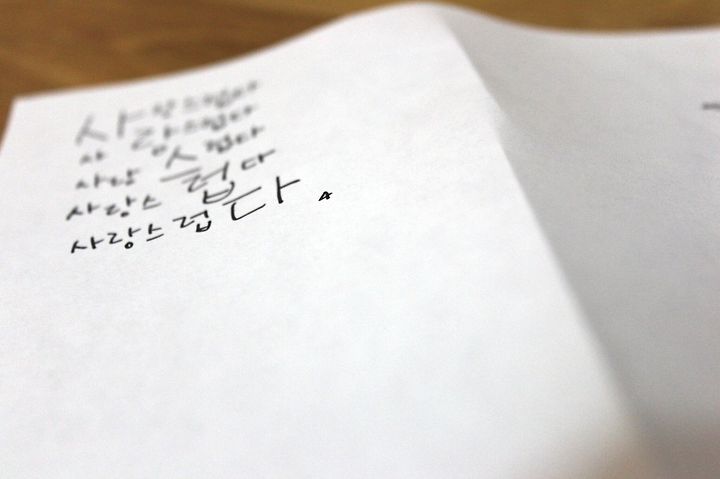 사랑스럽다
사랑스럽다
사랑스럽다
사랑스럽다
사랑스럽다.